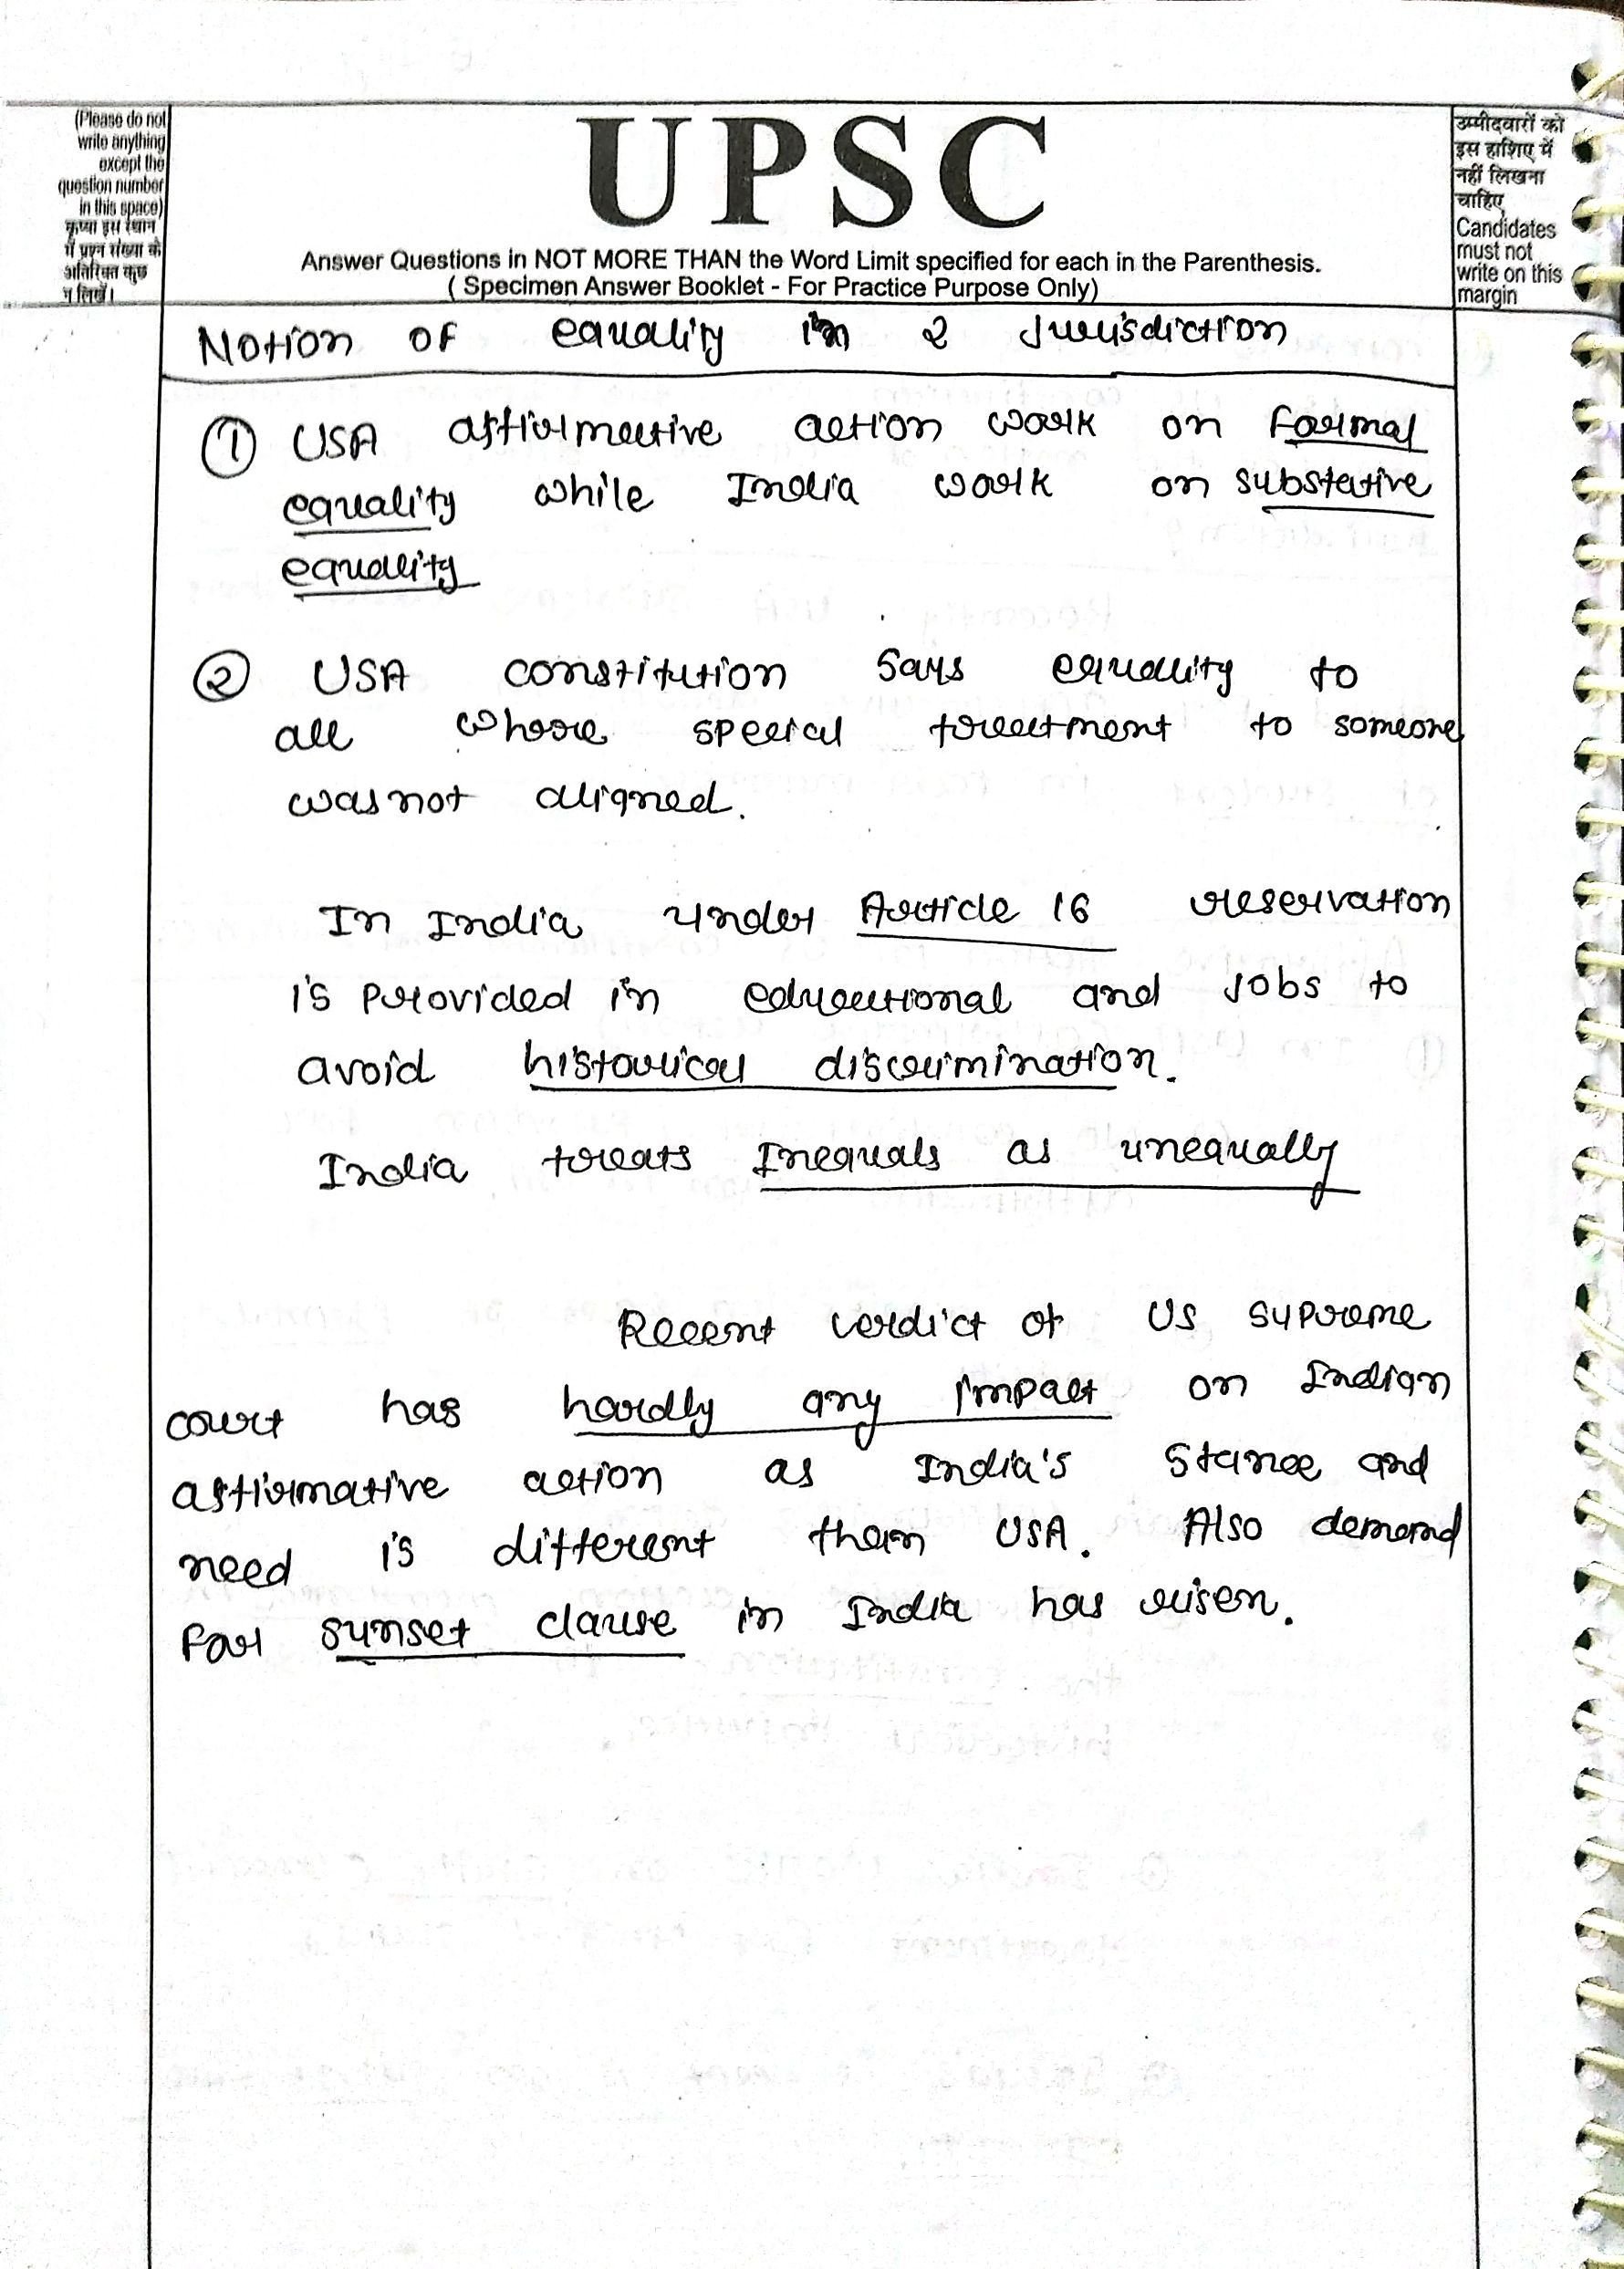 (Please do not
write anything
except the
question number
in this space)
कृप्या इस स्थान
में प्रश्न संख्या के
अतिरिक्त कुछ
न लिखें।
UPSC
Answer Questions in NOT MORE THAN the Word Limit specified for each in the Parenthesis.
( Specimen Answer Booklet - For Practice Purpose Only)
उम्मीदवारों को
इस हाशिए में
नहीं लिखना
चाहिए
Candidates
must not
write on this
margin
Notion of equality in 2 Jurisdiction
① USA affirmative action work on formal
equality while India work on substative
equality
② USA constitution says equality to
all whose special treatment to someone
was not aligned.
In India under Article 16 reservation
is provided in educational and jobs to
avoid historical discrimination.
India treats Inequals as unequally
Recent verdict of US Supreme
court has hardly any impact on Indian
affirmative action as India's stance and
need is different than USA. Also demand
for sunset clause in India has risen.